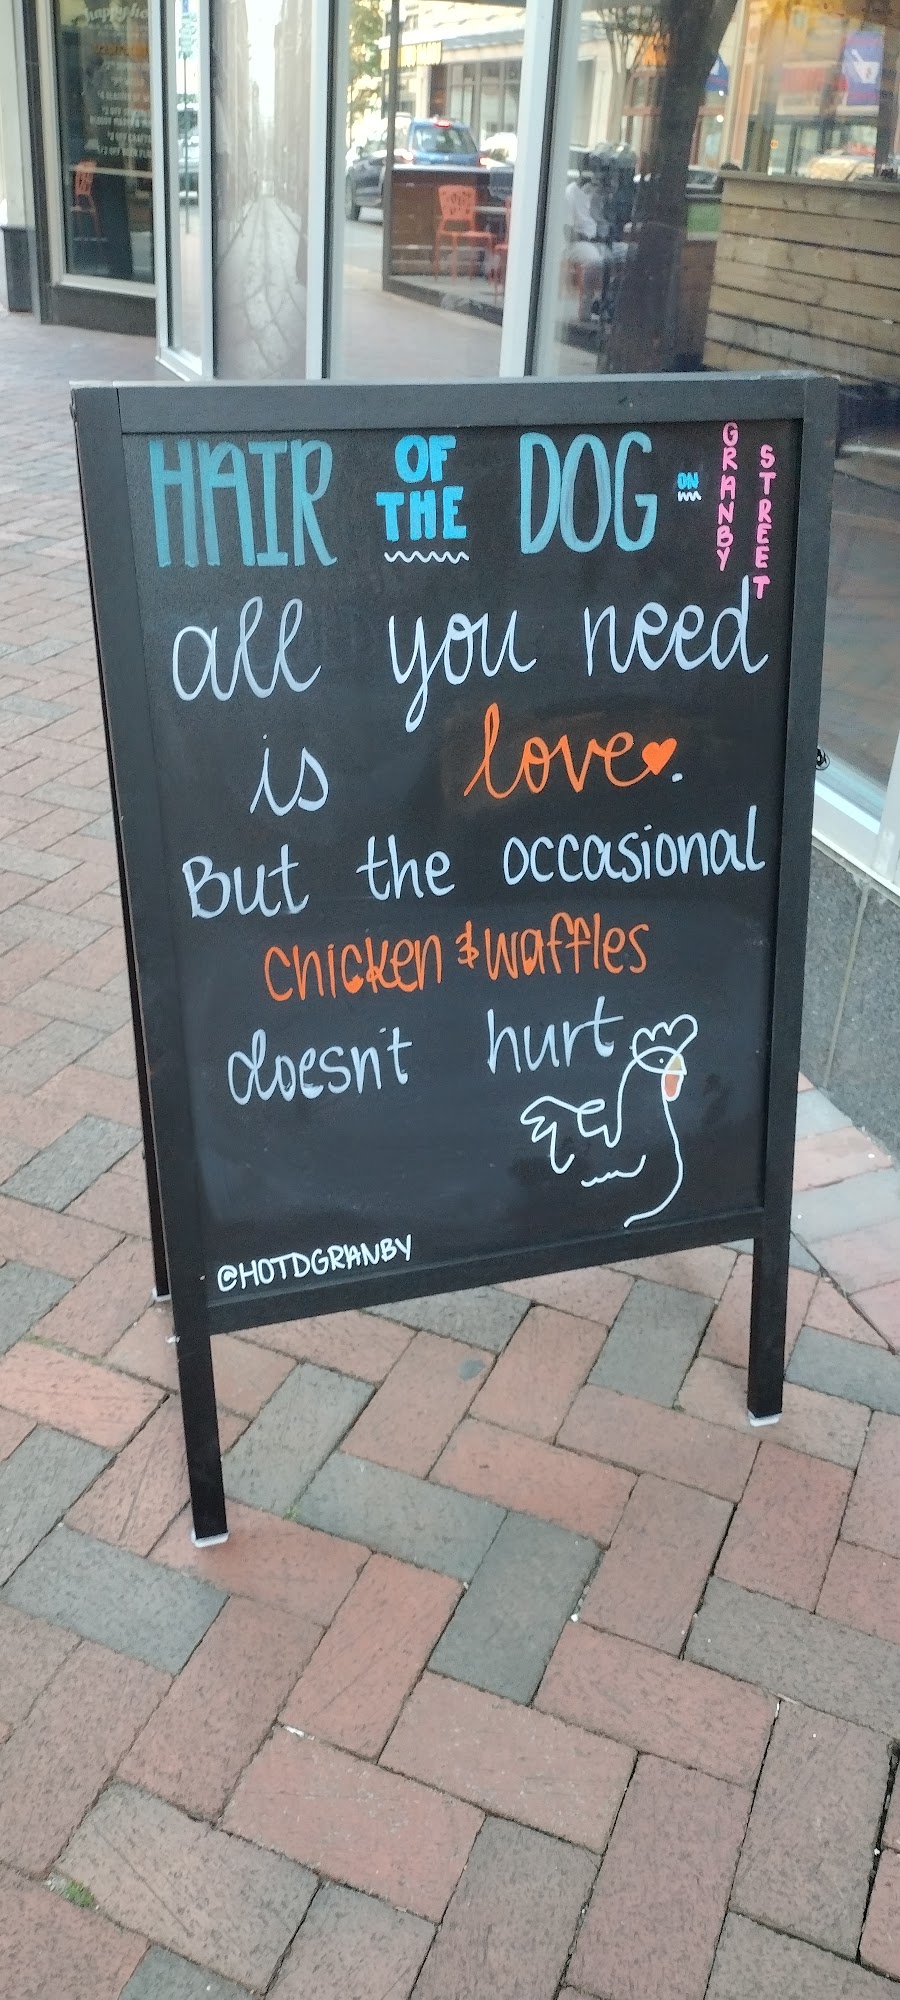 HAIR OF THE DOG ON GRANBY STREET
all you need
is love.
But the occasional
chicken & waffles
doesn't hurt
@HOTDGRANBY